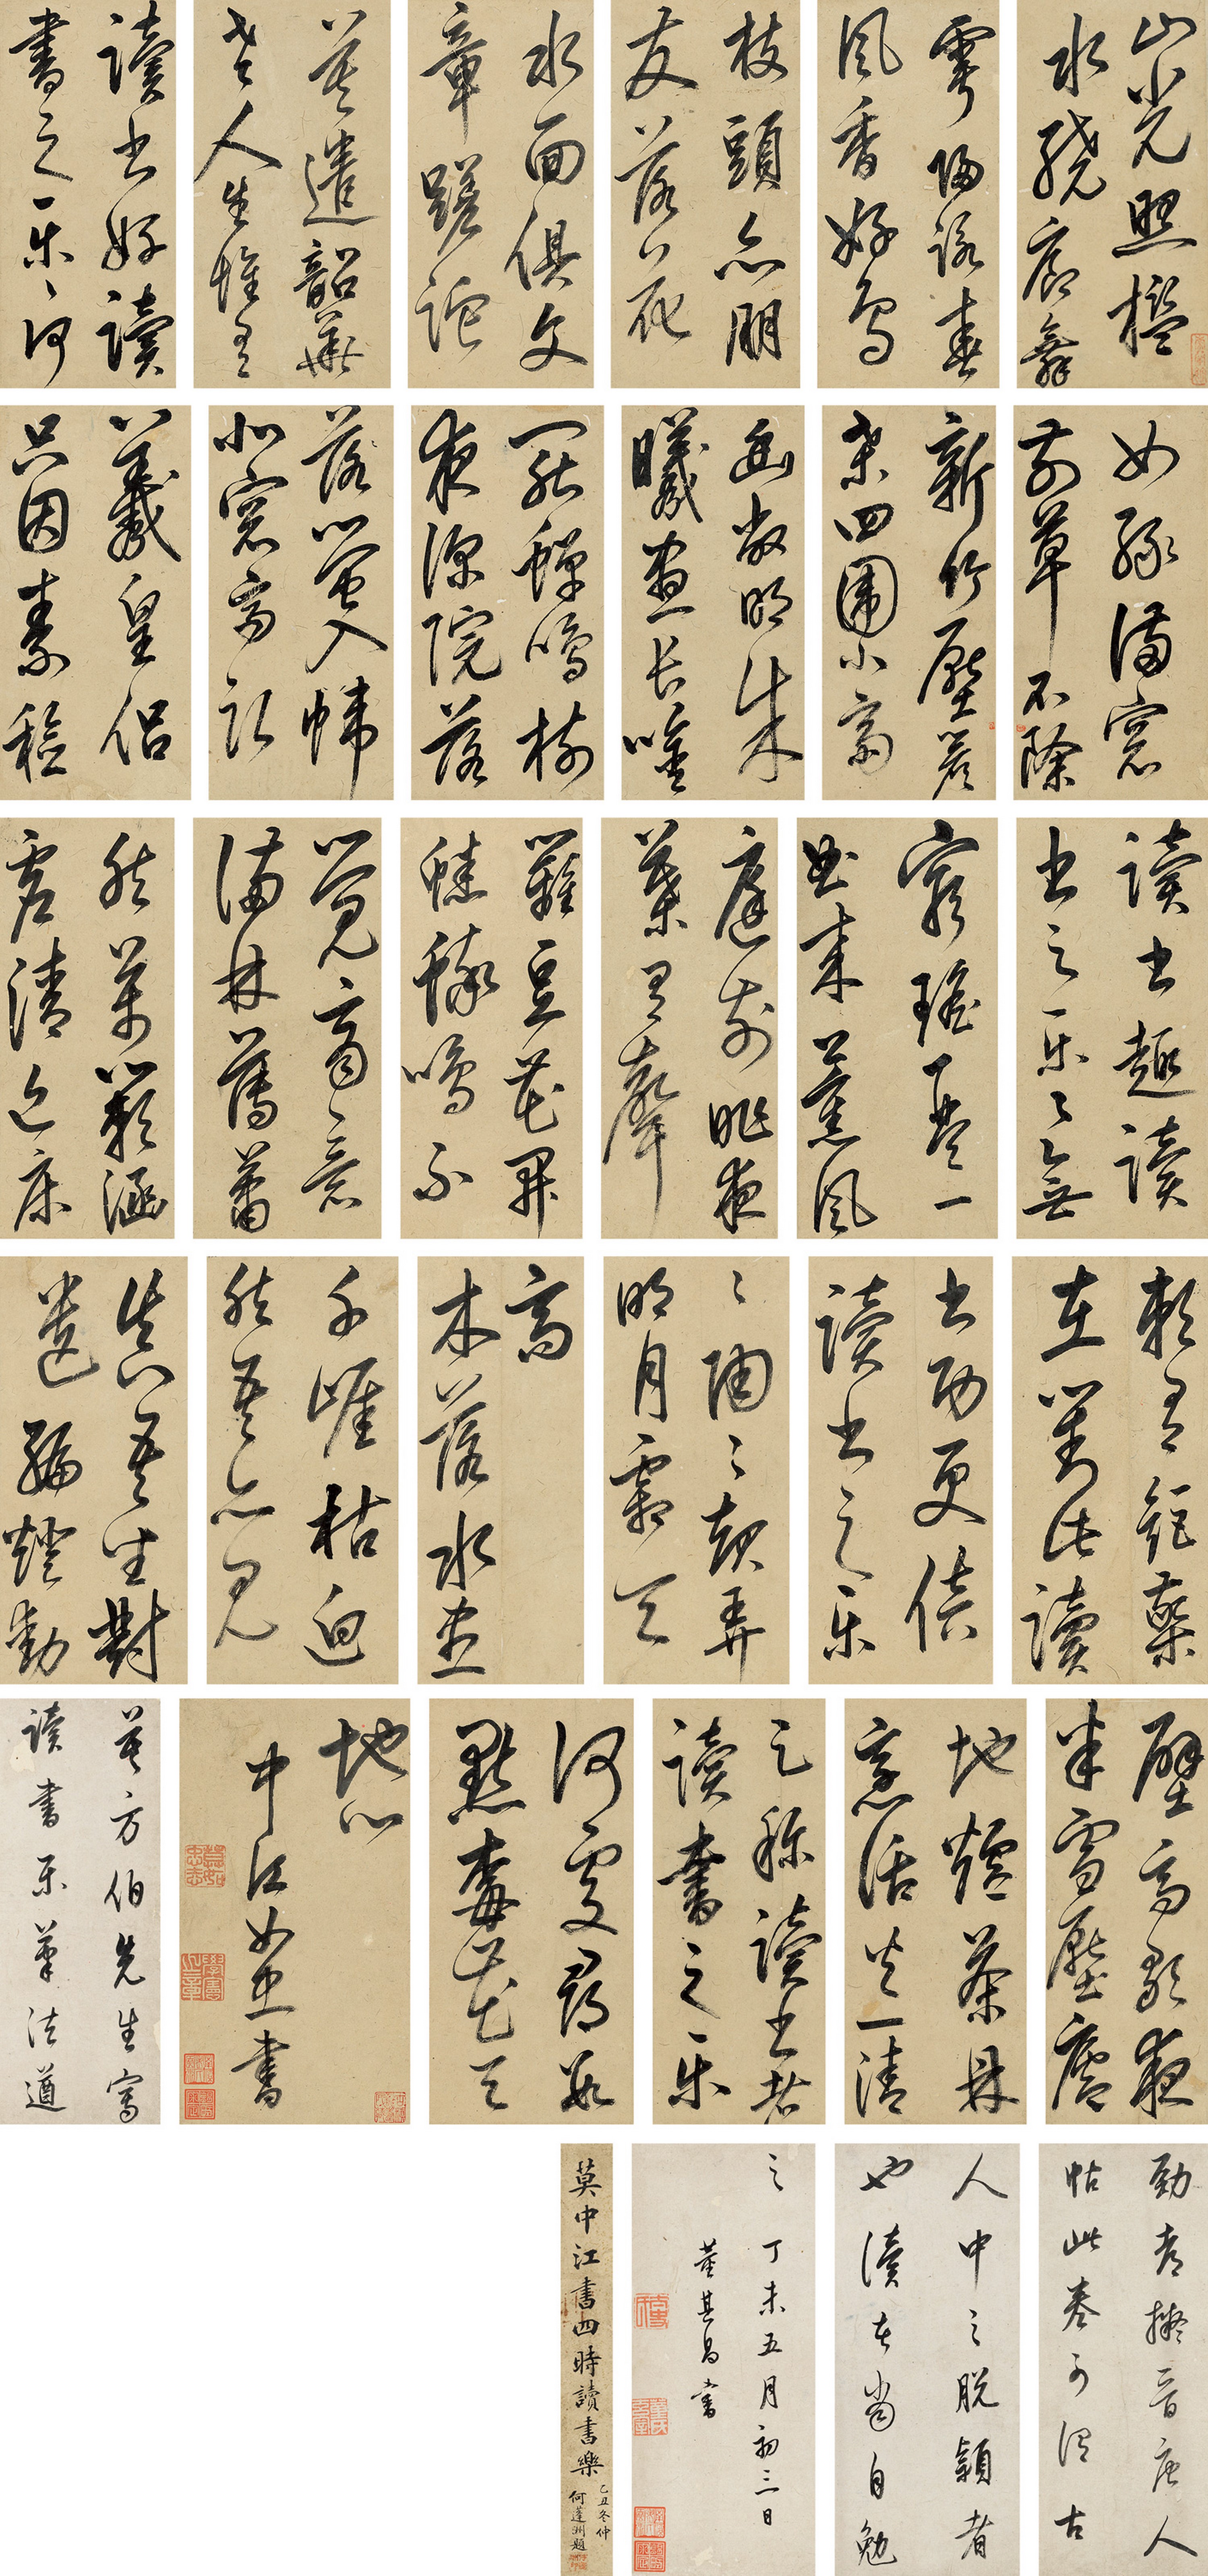 山光照檻
水繞廊舞
雩歸詠春
風香好鳥
枝頭亦朋
友落花
水面俱文
章蹉跎
莫遣韶華
老人生惟有
讀書好讀
書之樂々何
如綠滿窗
前草不除
新竹壓簷
桑四圍小齋
幽敞明朱
曦晝長吟
罷蟬鳴樹
夜深院落
落螢入幃
北窗高臥
羲皇侶
只因素稔
讀書趣讀
書之樂々無
窮瑤琴一
曲來薰風
庭前昨夜
葉有聲
籬豆花開
蟋蟀鳴不
覺商意
滿林薄蕭
然萬籟涵
虛清近床
賴有短檠
在對此讀
書功更倍
讀書之樂
々陶々起弄
明月霜天
高
木落水盡
千崖枯迥
然吾亦見
真吾坐對
遺編燈動
壁高歌夜
半雪壓廬
地爐茶鼎
烹活火一清
足稱讀書者
讀書之樂
何處尋數
點梅花天
地心
中江如忠書
莫方伯先生寫
讀書樂筆法遒
勁擬晉唐人
帖此卷可謂古
人中之脫穎者
也讀者當自勉
之 丁未五月初三日
董其昌書
莫中江書四時讀書樂
乙丑冬仲
何蓬洲題